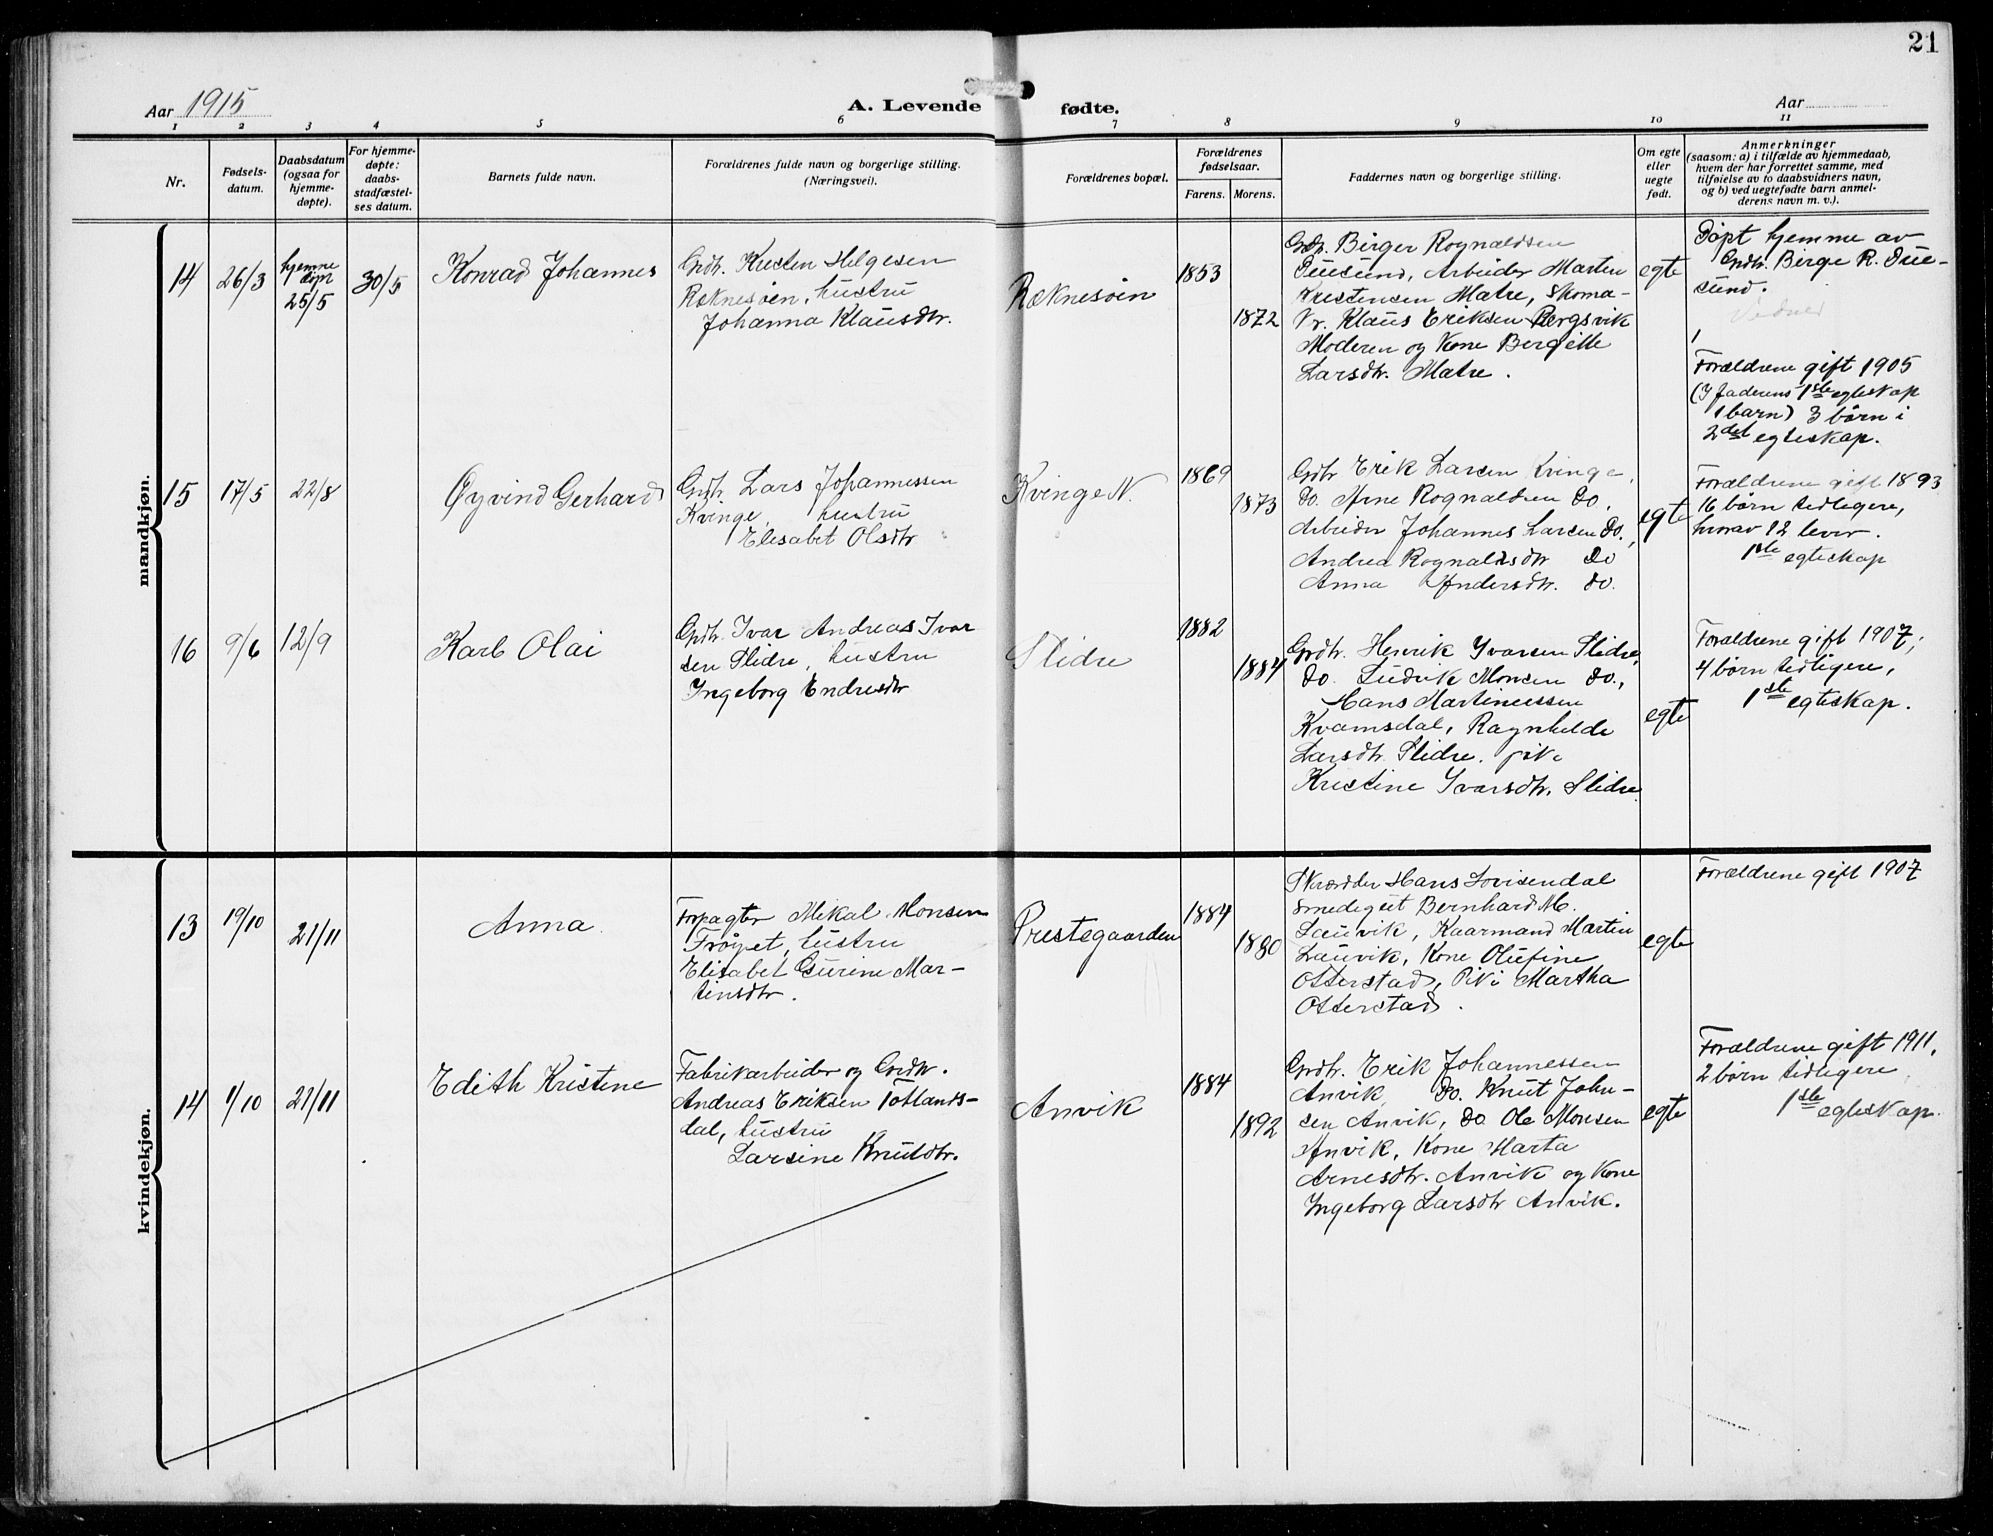 21
Aar 1915
A. Levende fødte.
Aar
1 2 3 4 5 6 7 8 9 10 11
Nr.
Fødsels-
datum.
Daabsdatum
(ogsaa for
hjemme-
døpte).
For hjemme-
døpte:
daabs-
stadfæstel-
ses datum.
Barnets fulde navn.
Forældrenes fulde navn og borgerlige stilling.
(Næringsvei).
Forældrenes bopæl.
Forældrenes
fødselsaar.
Farens. Morens.
Faddernes navn og borgerlige stilling.
Om egte
eller
uegte
født.
Anmerkninger
(saasom: a) i tilfælde av hjemmedaab,
hvem der har forrettet samme, med
tilføielse av to daabsvidners navn,
og b) ved uegtefødte barn anmel-
derens navn m. v.).
mandkjøn.
14
26/3
hjemme
døpt
25/5
30/5
Konrad Johannes
Grdr. Kristen Helgesen
Reknesøen, hustru
Johanna Klausdtr.
Reknesøen
1853
1872
Grdr. Birger Rognaldsen
Duesund, Arbeider Marten
Kristensen Matre, Skoma-
ker Klaus Eriksen Bergsvik
Moderen og Kone Bergitte
Larsdtr. Matre.
egte
Døpt hjemme av
Grdr. Birge R. Due-
sund.
Forældrene gift 1905
(I faderens 1ste egteskap
1 barn) 3 børn i
2det egteskap.
15
17/5
22/8
Øyvind Gerhard
Grdr. Lars Johannessen
Kvinge, hustru
Elisabet Olsdtr
Kvinge N.
1869
1873
Grdr Erik Larsen Kvinge,
Do. Arne Rognaldsen Do,
Arbeider Johannes Larsen Do.,
Andrea Rognaldsdtr Do
Anna Andersdtr. Do.
egte
Forældrene gift 1893
16 børn tidligere,
hvorav 12 lever.
1ste egteskap
16
9/6
12/9
Karl Olai
Grdr. Ivar Andreas Ivar
sen Slidre, hustru
Ingeborg Endresdtr
Slidre
1882
1884
Grdr. Henrik Ivarsen Slidre,
Do. Ludvik Monsen Do.,
Hans Martinussen
Kvamsdal, Ragnhilde
Larsdtr. Slidre. pike
Kristine Ivarsdtr. Slidre.
egte
Forældrene gift 1907,
4 børn tidligere,
1ste egteskap.
kvindekjøn.
13
19/10
21/11
Anna
Forpagter Mikal Monsen
Frøyset, hustru
Elisabet Gurine Mar-
tinsdtr.
Prestegaarden
1884
1880
Skrædder Hans Lovisendal
Smedegut Bernhard M.
Lauvik, Kaarmand Martin
Lauvik, Kone Olufine
Otterstad, Pike Martha
Otterstad.
egte
Forældrene gift 1907
14
1/10
21/11
Edith Kristine
Fabrikarbeider og Grdr.
Andreas Eriksen Totlands-
dal, hustru
Larsine Knutdtr.
Anvik
1884
1892
Grdr. Erik Johannessen
Anvik, Do. Knut John-
sen Anvik, Do Ole Monsen
Anvik, Kone Marta
Arnesdtr. Anvik og Kone
Ingeborg Larsdtr Anvik.
egte
Forældrene gift 1911,
2 børn tidligere
1ste egteskap.